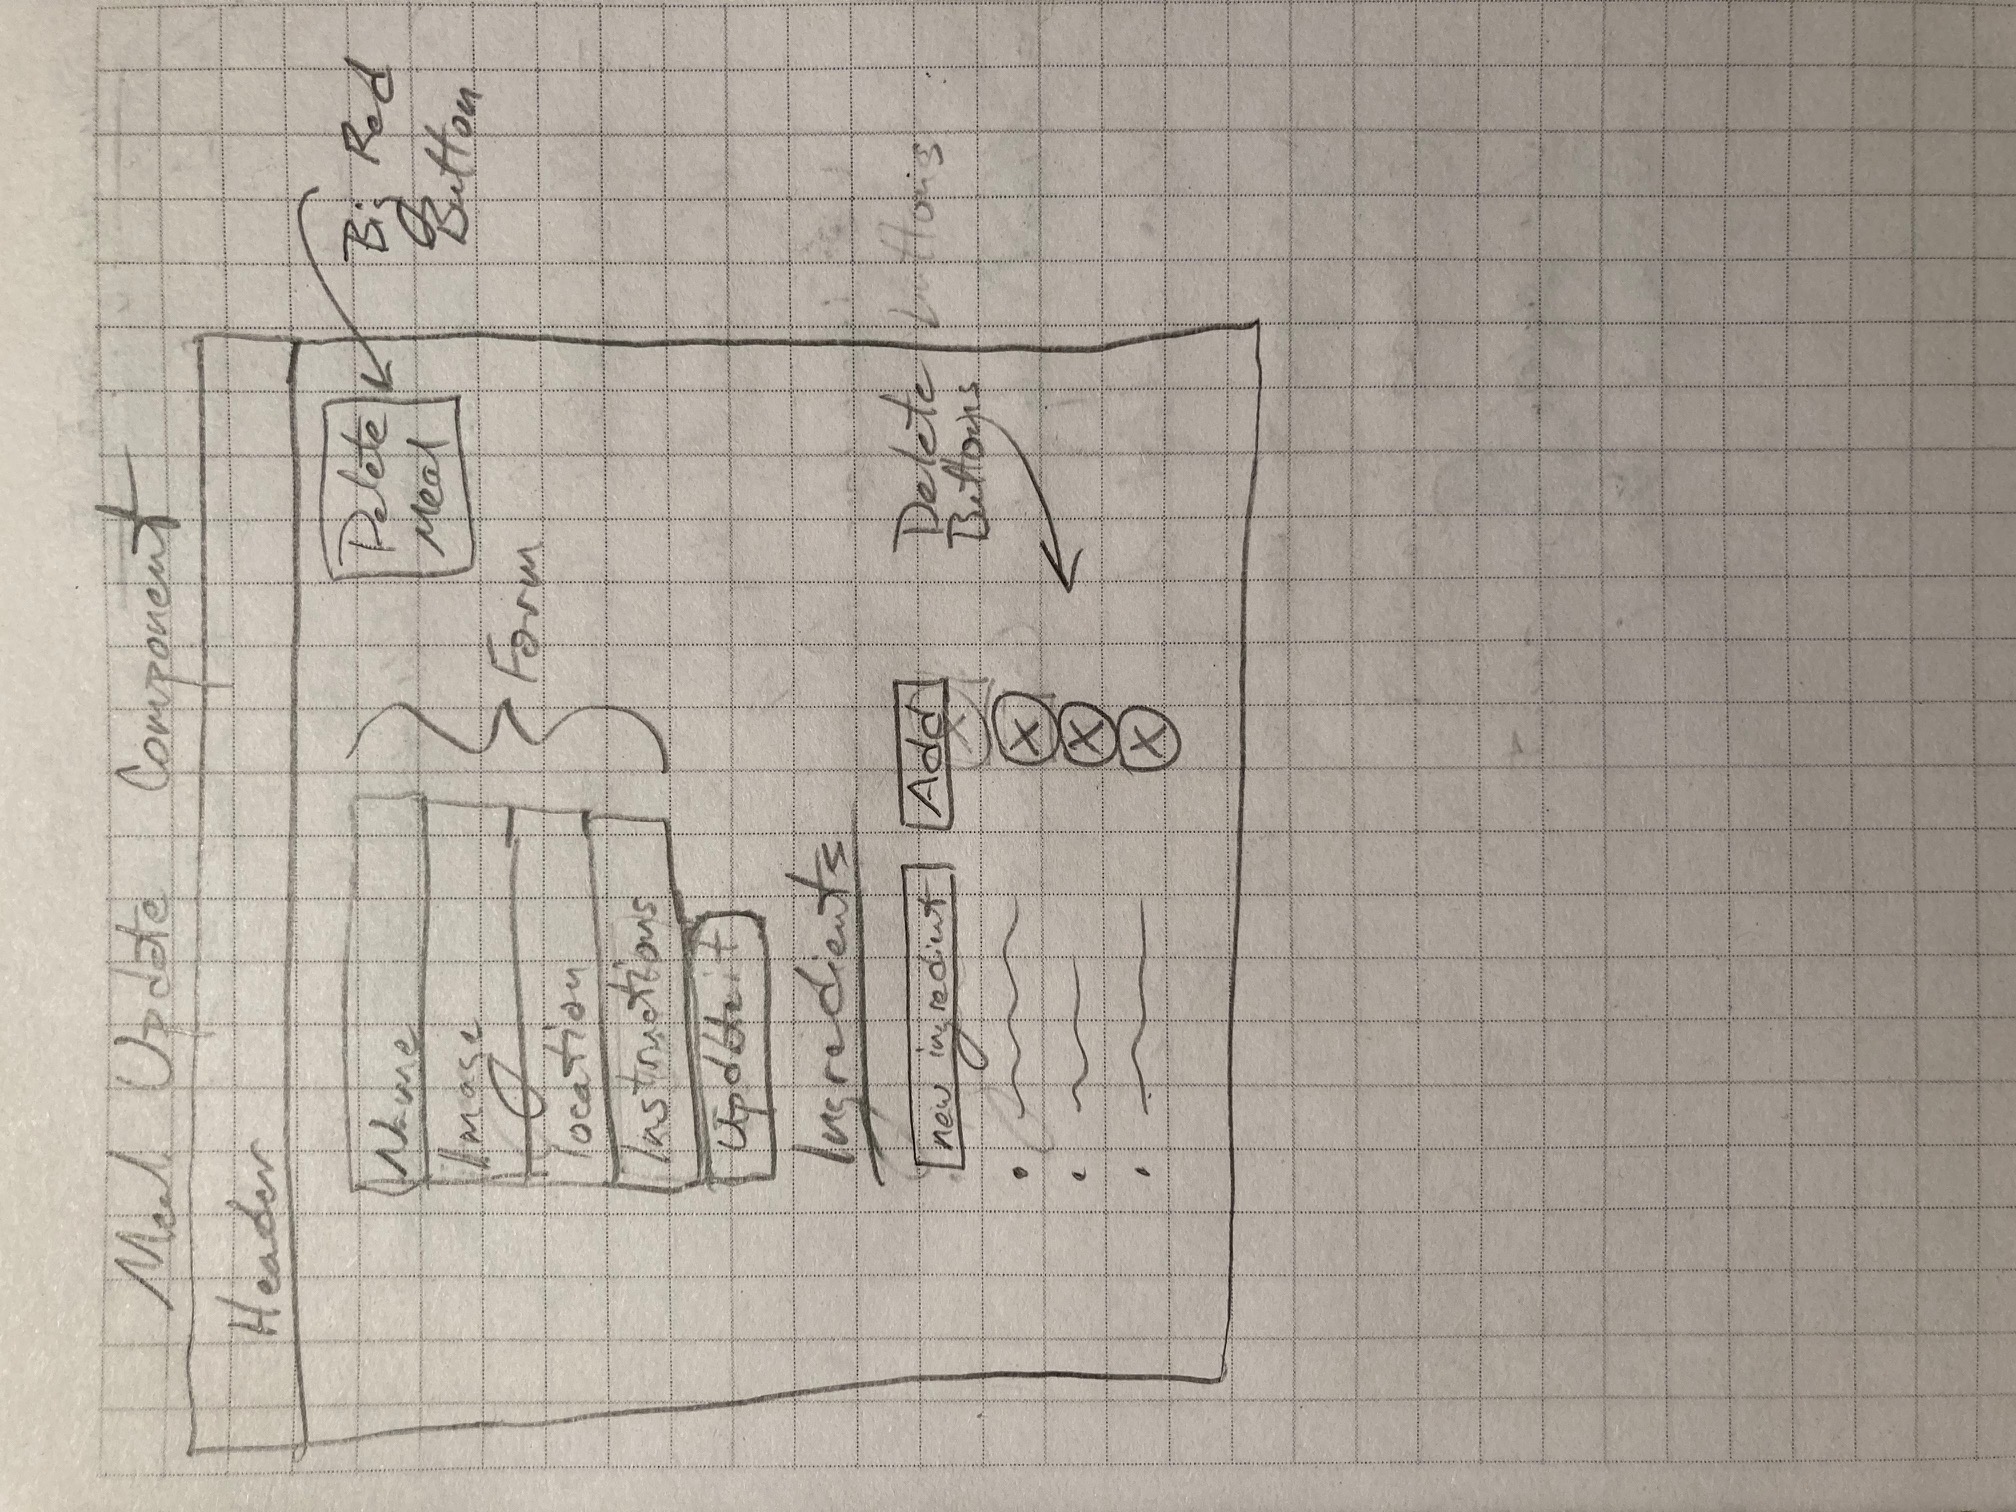 Meal Update Component
Header
Name
Image
location
Instructions
Form
Delete
Meal
Big Red
Button
Update
Ingredients
new ingredient
Add
X
X
X
X
Delete buttons
Buttons